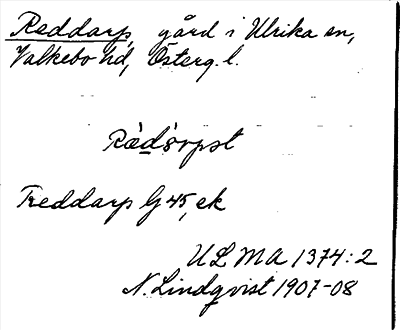 Reddarp, gård i Ulrika sn,
Valkebo hd, Österg. l.
Rèd̲s̀rpst
Freddarp G 45, ek
ULMA 1374:2
N. Lindqvist 1907-08